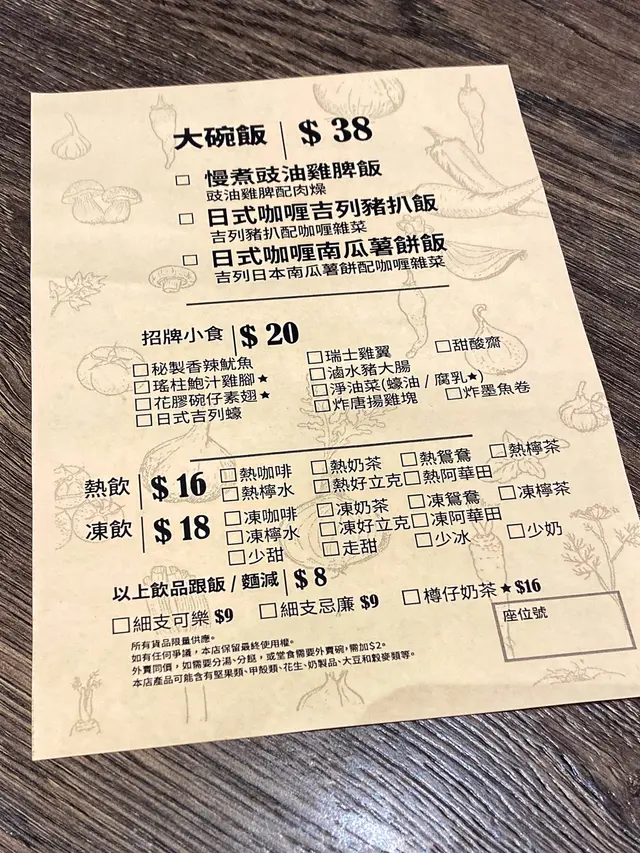 大碗飯 | $ 38
□ 慢煮豉油雞脾飯
豉油雞脾配肉燥
□ 日式咖喱吉列豬扒飯
吉列豬扒配咖喱雜菜
□ 日式咖喱南瓜薯餅飯
吉列日本南瓜薯餅配咖喱雜菜
招牌小食 | $ 20
□秘製香辣魷魚 □瑞士雞翼 □甜酸齋
□瑤柱鮑汁雞腳★ □滷水豬大腸
□花膠碗仔素翅★ □淨油菜(蠔油 / 腐乳★) □炸墨魚卷
□日式吉列蠔 □炸唐揚雞塊
熱飲 | $ 16 □熱咖啡 □熱奶茶 □熱鴛鴦 □熱檸茶
□熱檸水 □熱好立克 □熱阿華田
凍飲 | $ 18 □凍咖啡 □凍奶茶 □凍鴛鴦 □凍檸茶
□凍檸水 □凍好立克 □凍阿華田
□少甜 □走甜 □少冰 □少奶
以上飲品跟飯 / 麵減 | $ 8
□細支可樂 $9 □細支忌廉 $9 □樽仔奶茶★ $16
所有貨品限量供應。
如有任何爭議，本店保留最終使用權。
外賣同價，如需要分湯、分餸，或堂食需要外賣碗，需加$2。
本店產品可能含有堅果類、甲殼類、花生、奶製品、大豆和穀麥類等。
座位號